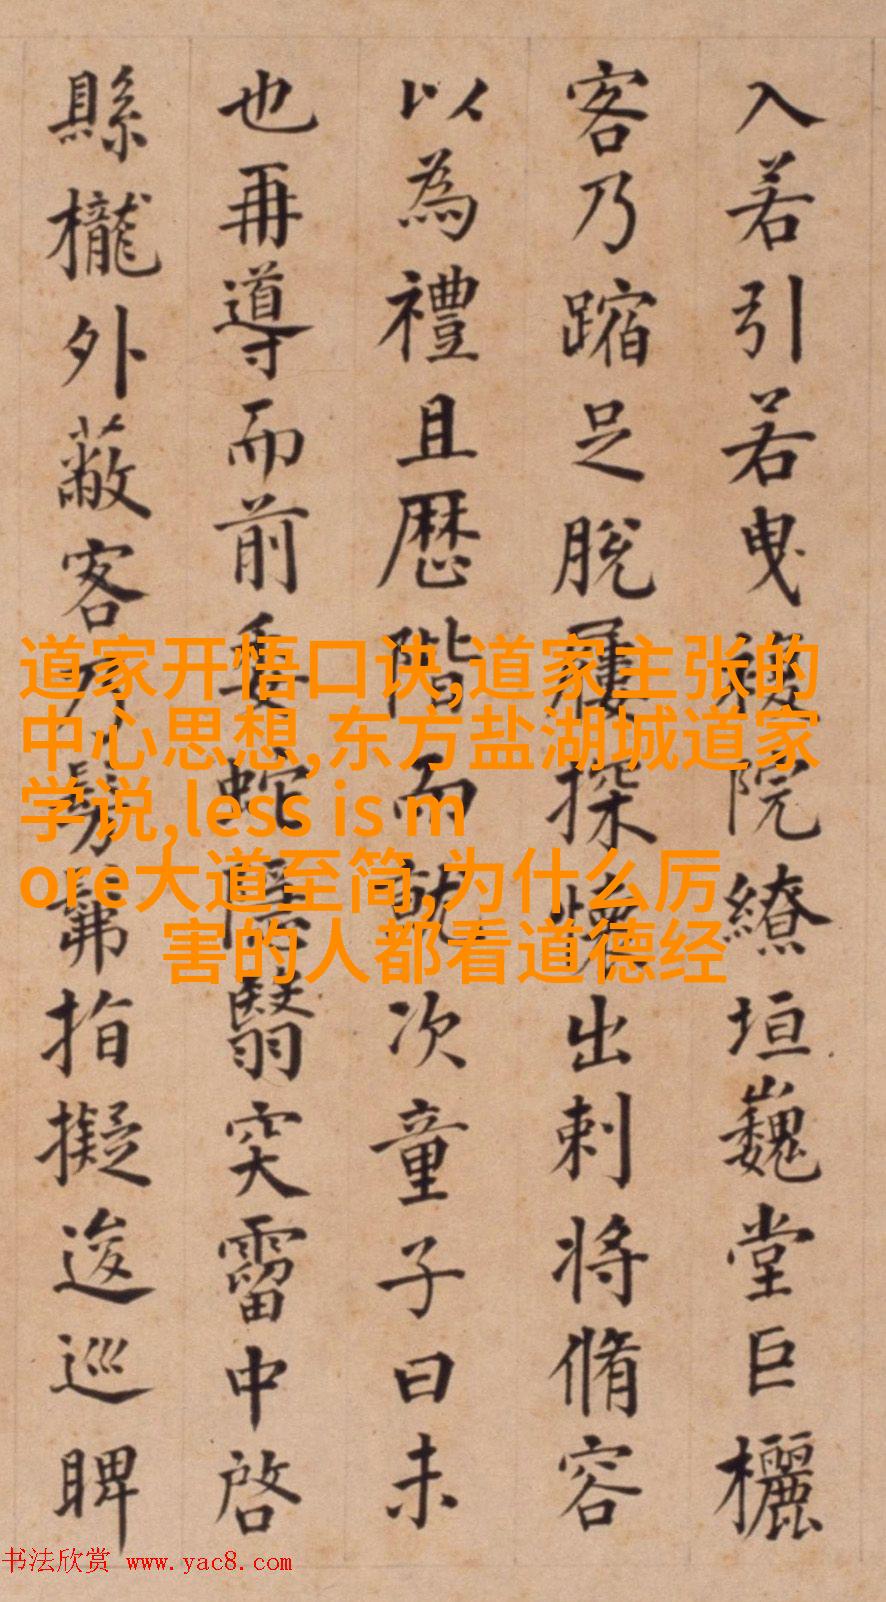 入若引若曳複院繚垣巍堂巨欐
客乃蹜足脫屨探懷出刺將脩容
以為禮且歷階而就次童子曰未
也再導而前委蛇隱翳突霤中啓
縣櫳外蔽客乃髣髴指擬逡巡睥
道家开悟口诀,道家主张的
中心思想,东方盐湖城道家
学说,less is m
ore大道至简,为什么厉
害的人都看道德经
书法欣赏 www.yac8.com